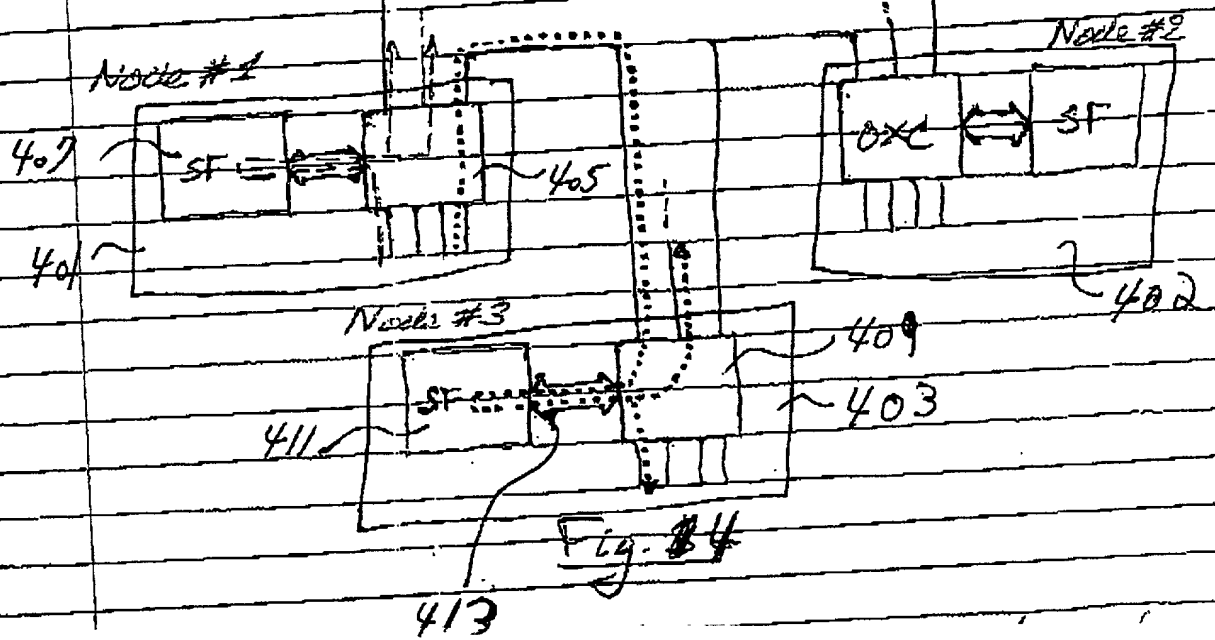 Node #2
Node #1
407
SF
405
OXC
SF
401
402
Node #3
409
SF
403
411
Fig. 4
413